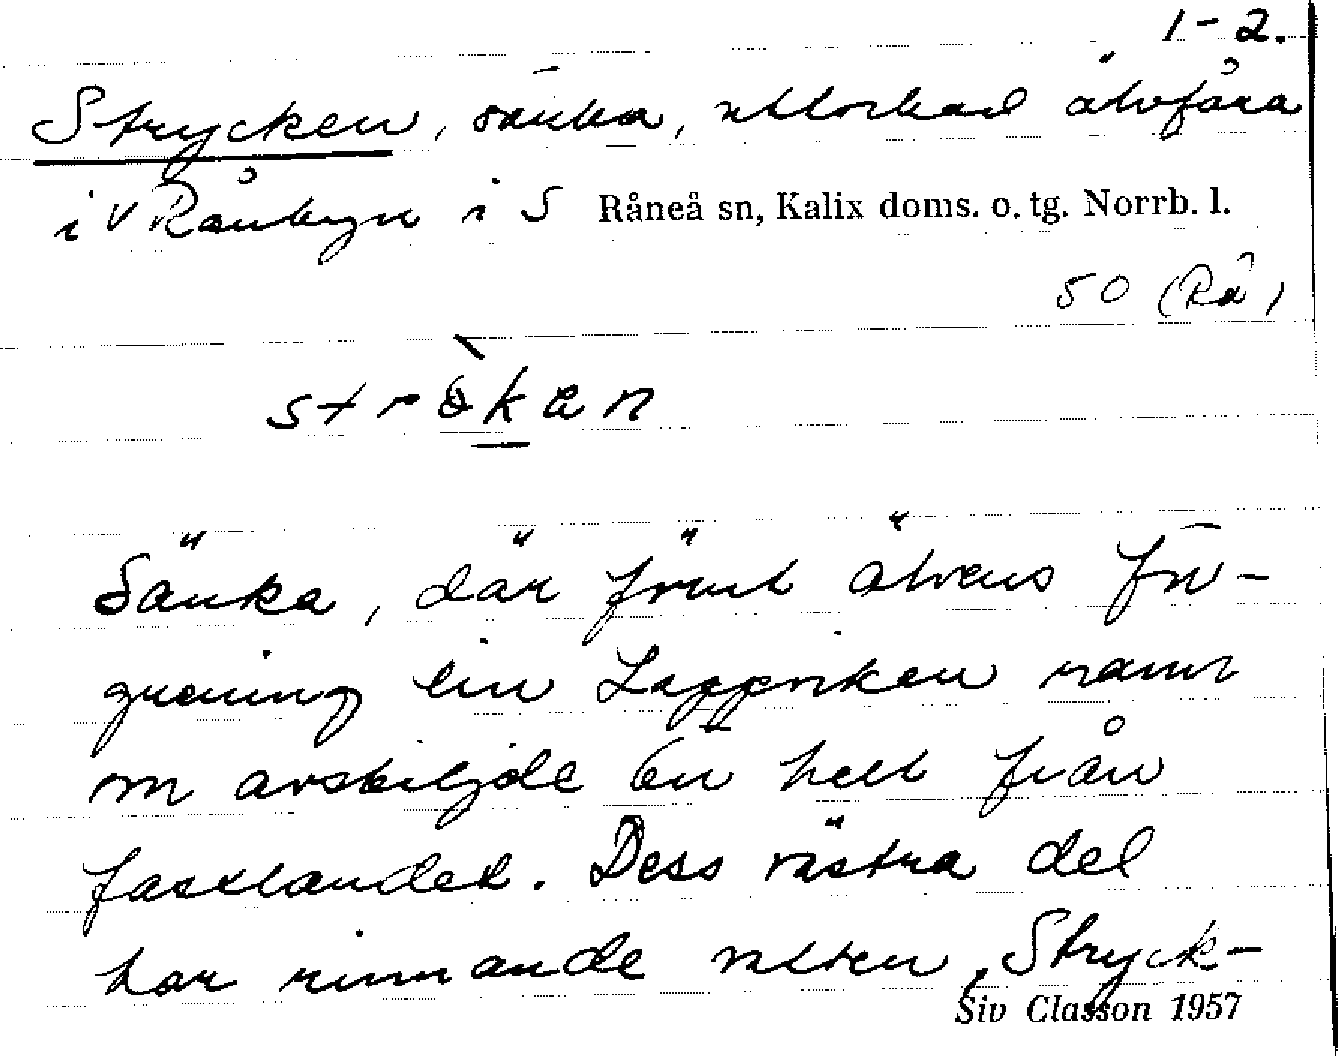 1-2.
Strycken, sänka, uttorkad älvfåra
i V Rånbyn i S Råneå sn, Kalix doms. o. tg. Norrb. l.
50 (Rå)
strö̀ken
Sänka, där förut älvens för-
grening lin Lappviken rann
om avskiljde ön helt från
fastlandet. Dess västra del
har rinnande vatten, Stryck-
Siv Classon 1957